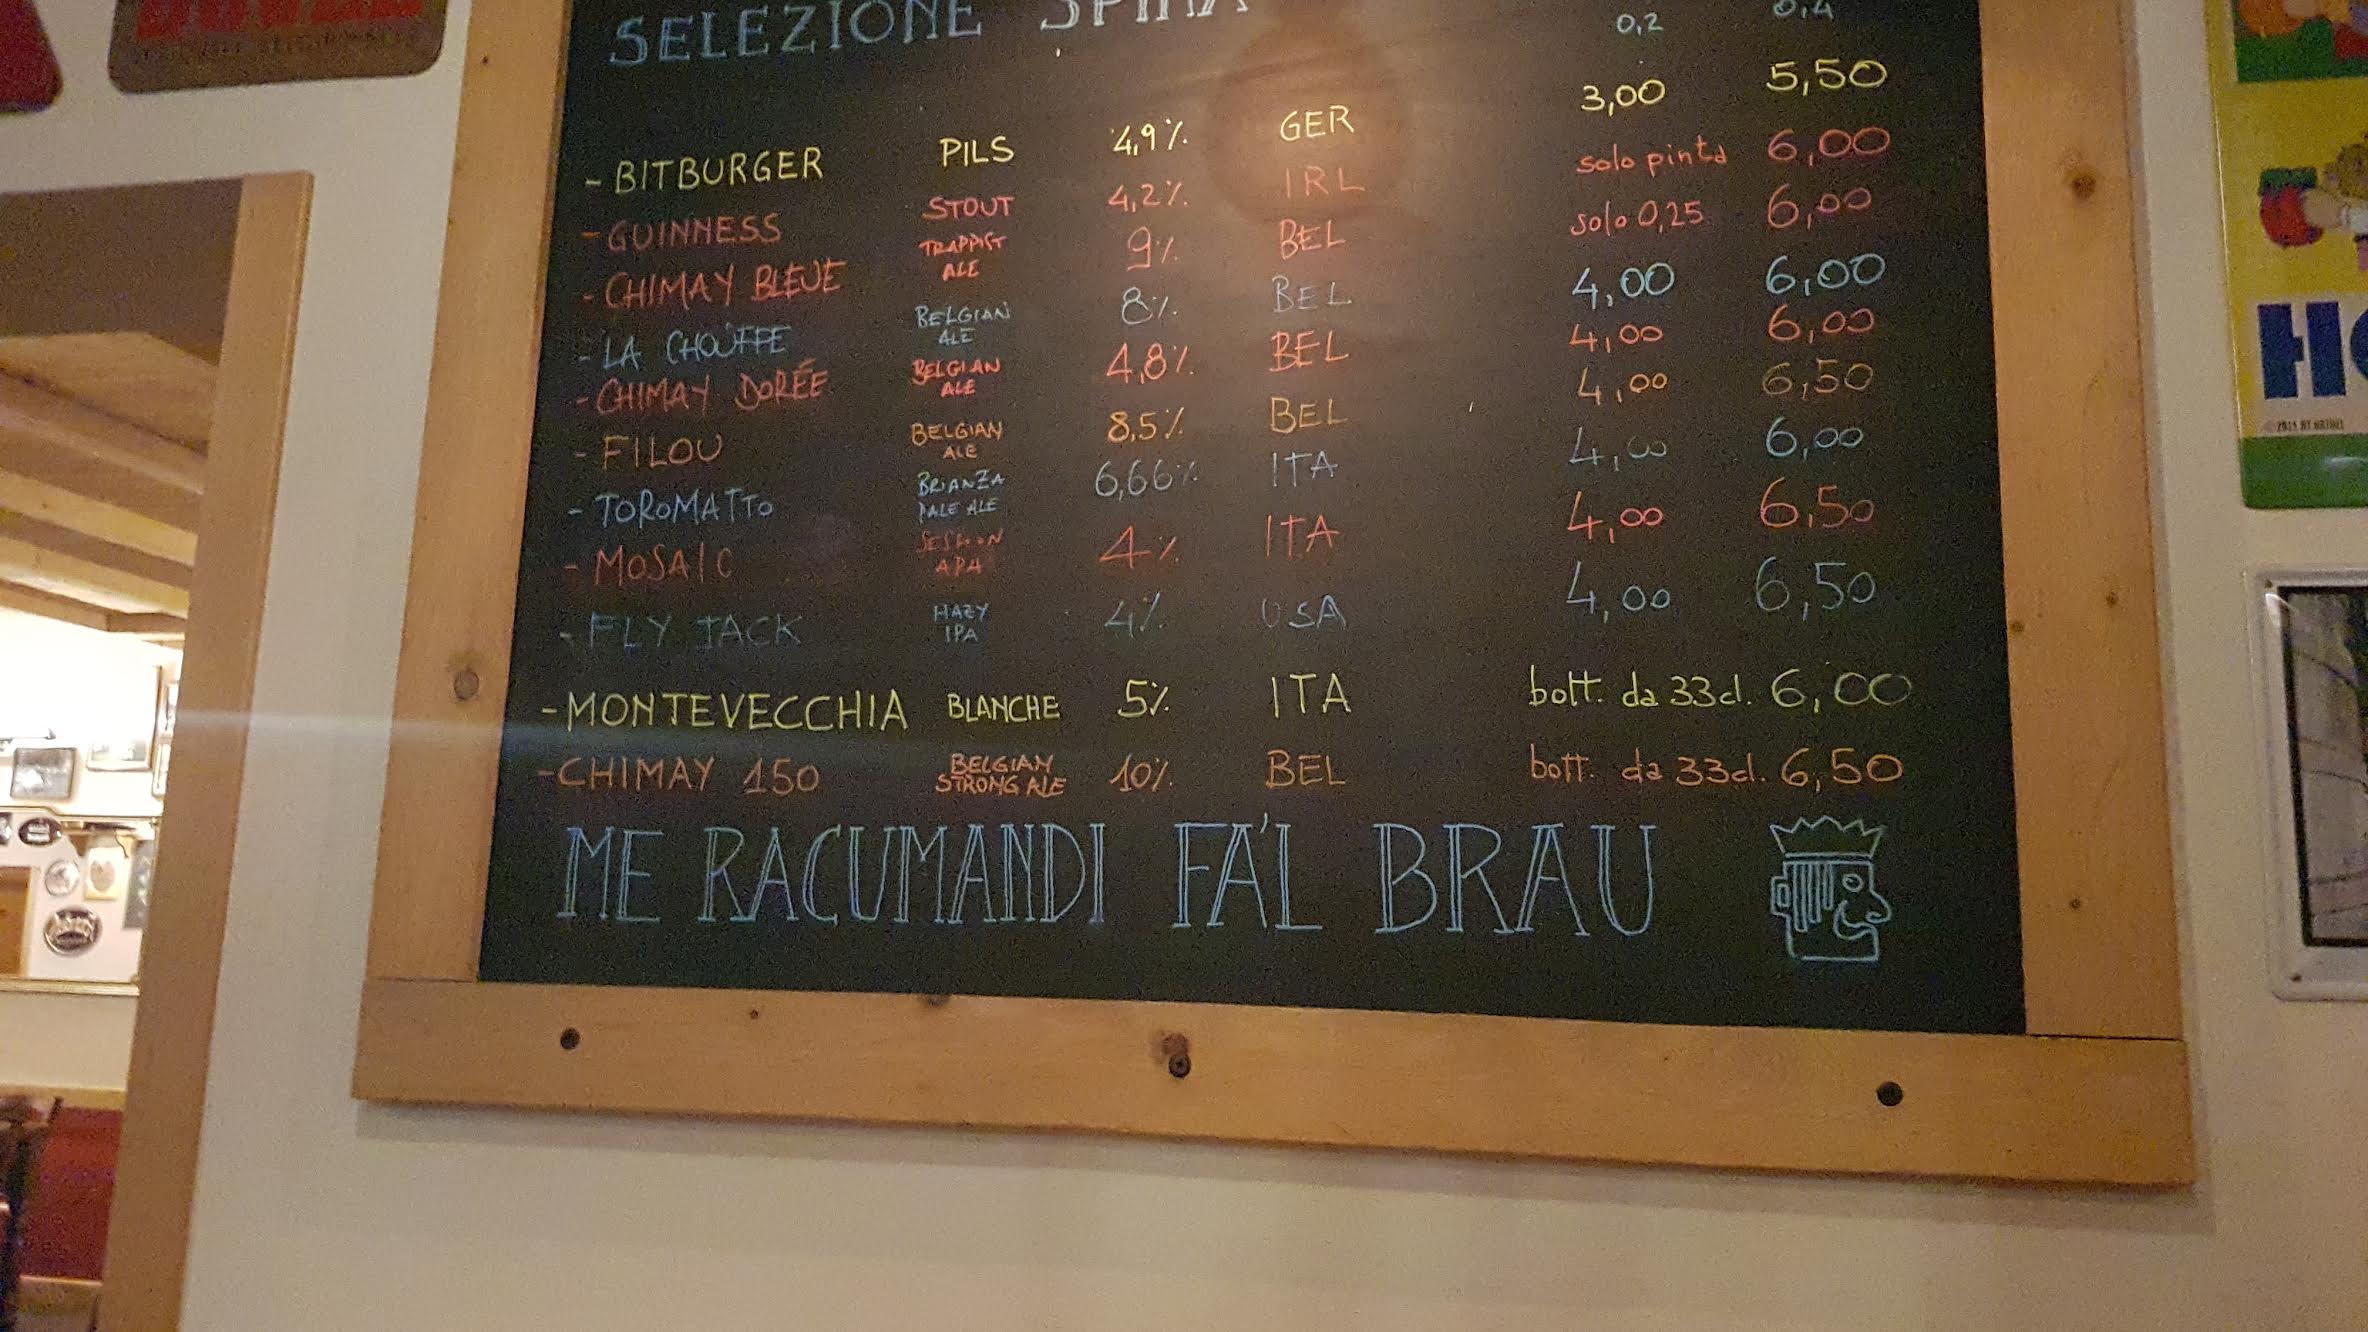 SELEZIONE SPINA 0,2 0,4
- BITBURGER PILS 4,9% GER 3,00 5,50
- GUINNESS STOUT 4,2% IRL solo pinta 6,00
- CHIMAY BLEUE TRAPPIST ALE 9% BEL solo 0,25 6,00
- LA CHOUFFE BELGIAN ALE 8% BEL 4,00 6,00
- CHIMAY DORÉE BELGIAN ALE 4,8% BEL 4,00 6,00
- FILOU BELGIAN ALE 8,5% BEL 4,00 6,50
- TOROMATTO BRIANZA PALE ALE 6,66% ITA 4,00 6,00
- MOSAIC SESSION APA 4% ITA 4,00 6,50
- FLY JACK HAZY IPA 4% USA 4,00 6,50
- MONTEVECCHIA BLANCHE 5% ITA bott. da 33cl. 6,00
- CHIMAY 150 BELGIAN STRONG ALE 10% BEL bott. da 33cl. 6,50
ME RACUMANDI FA'L BRAU